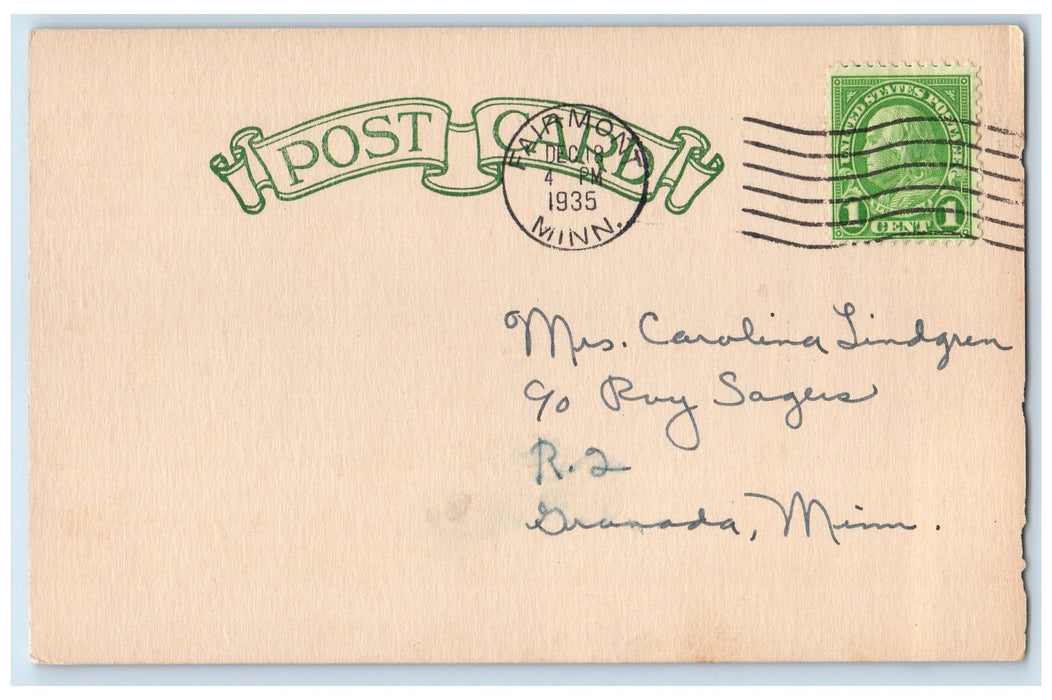 POST CARD
FAIRMONT
DEC 18
4 PM
1935
MINN.
UNITED STATES POSTAGE
1 CENT 1
Mrs. Carolina Lindgren
c/o Roy Sagers
R.2
Granada, Minn.